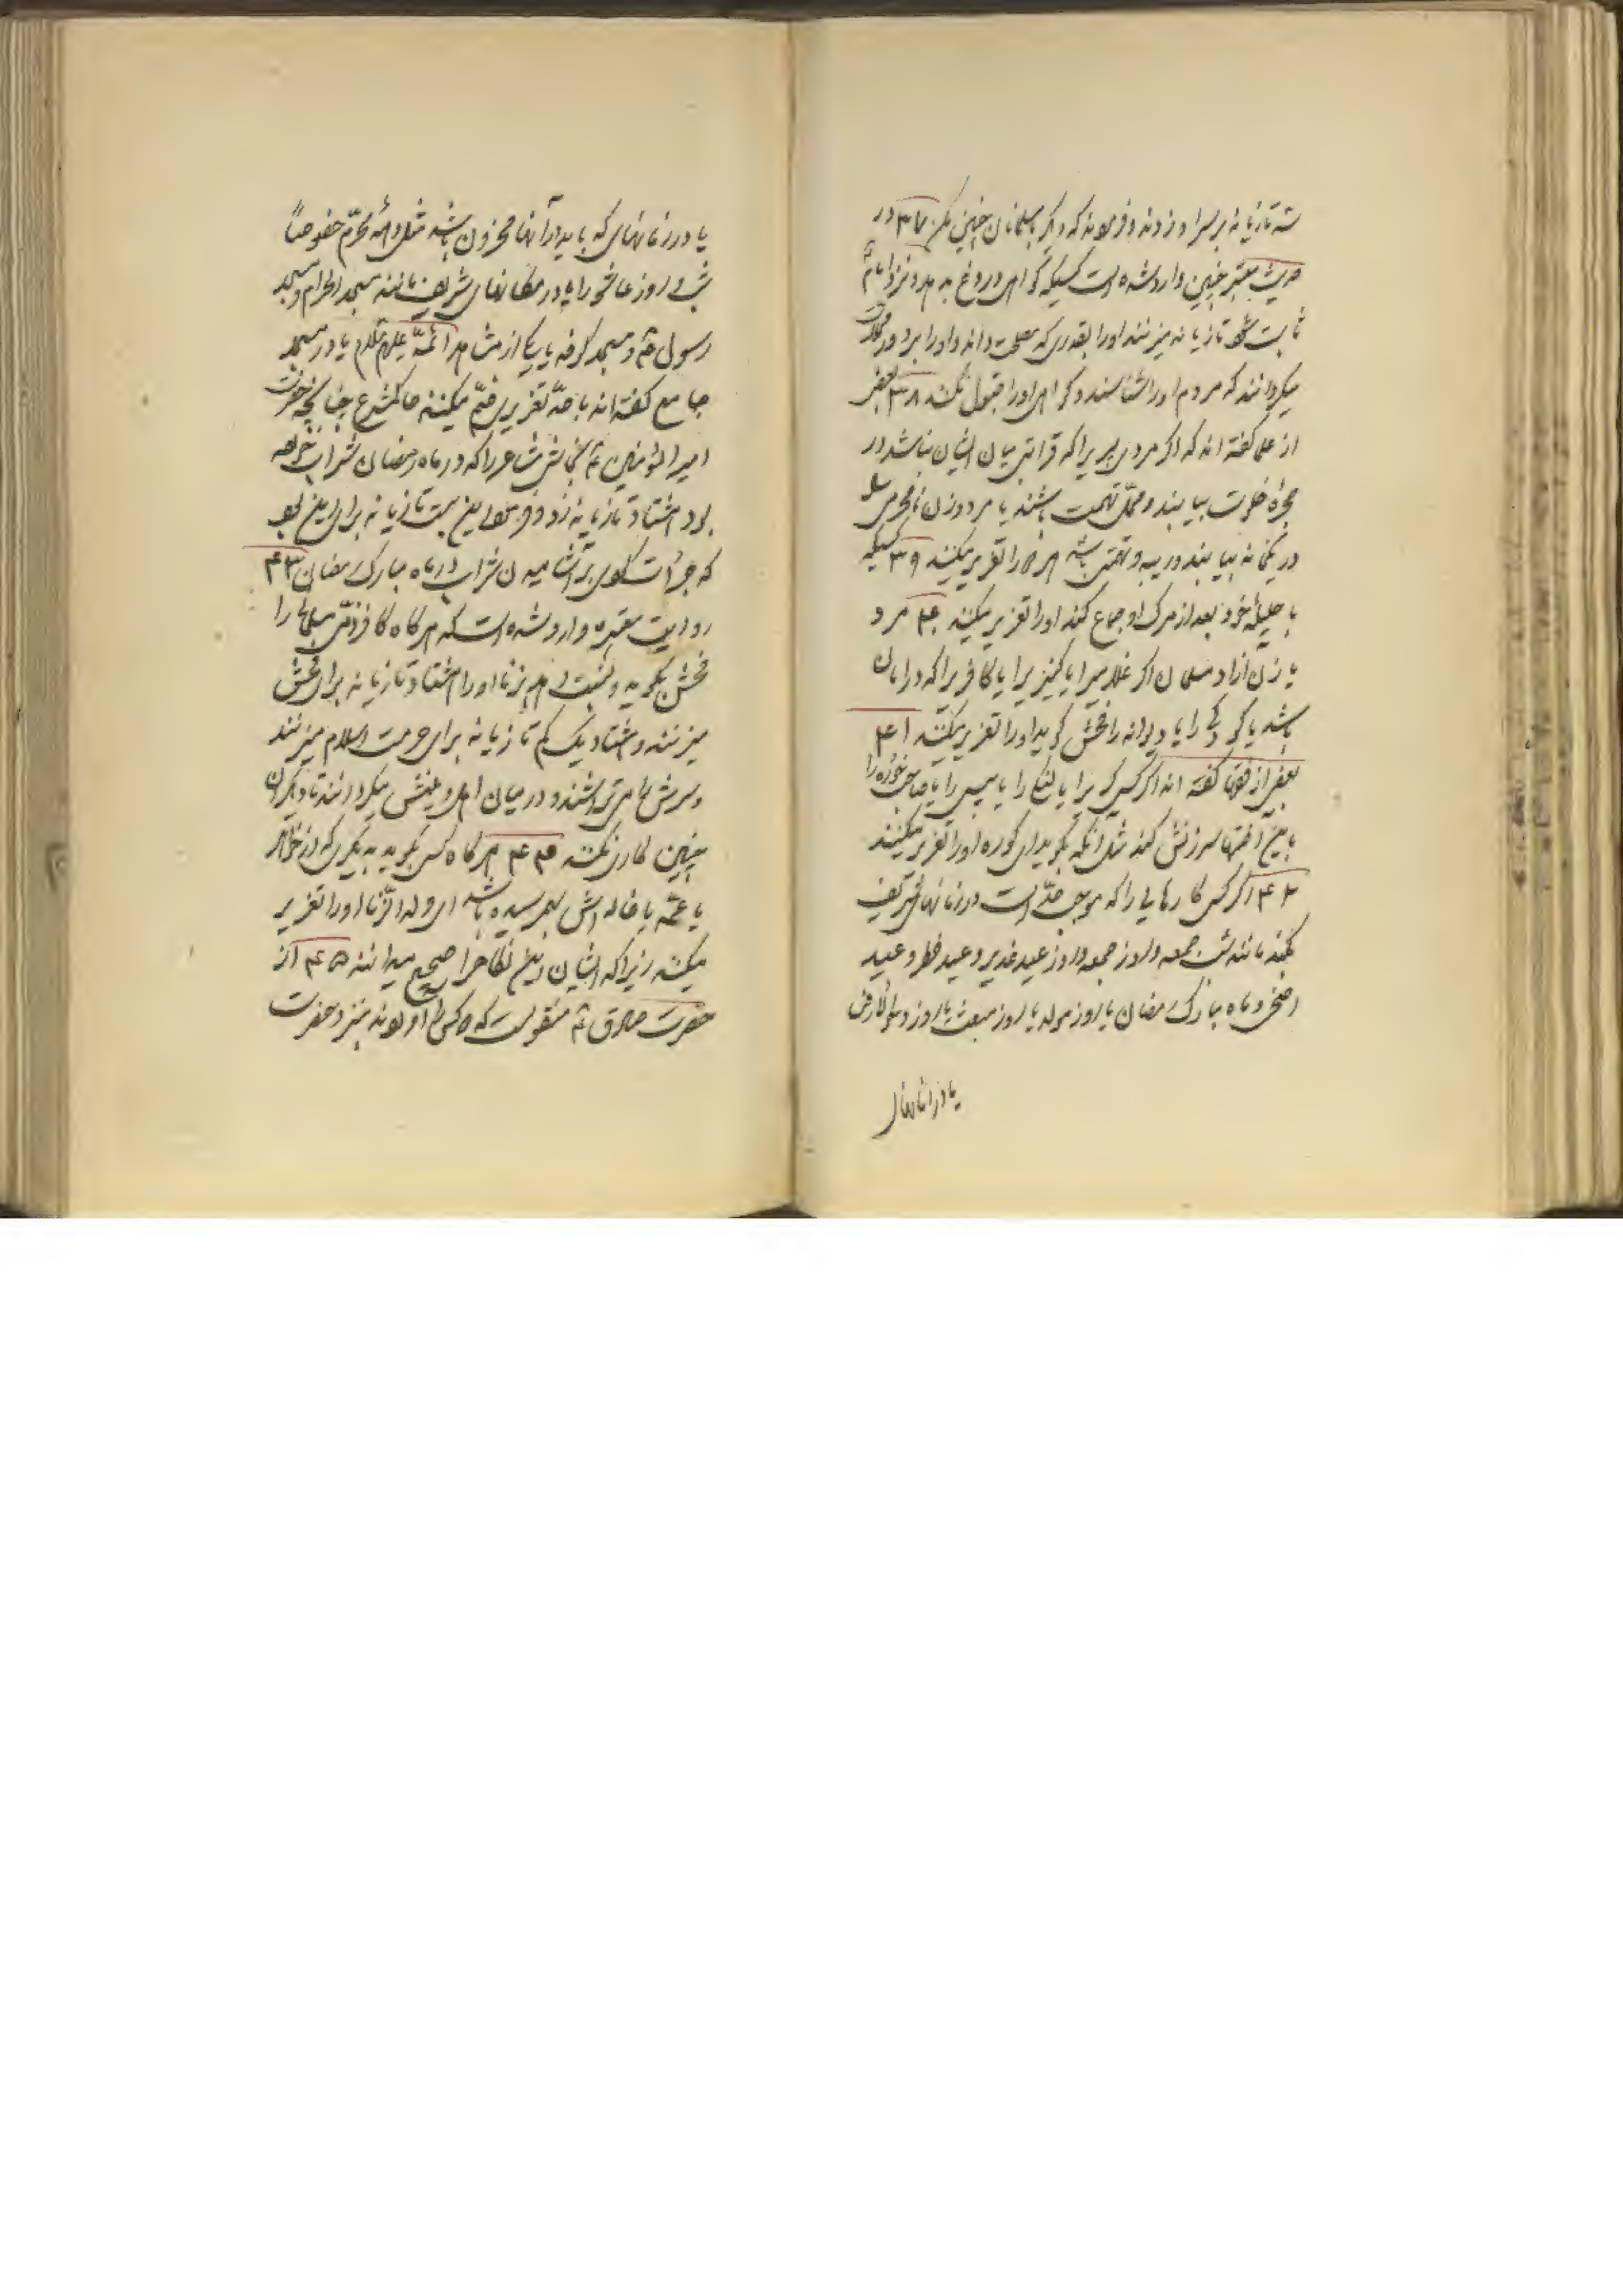 سه تازیانه بر سر او زدند و فرمودند که دیگر با مسلمانان چنین مکن ۳۷ در
حدیث معتبر چنین وارد شده است کسیکه گواهی دروغ بدهد و نزد امام ع
ثابت شود تازیانه میزنند او را بقدری که مصلحت داند و او را بر دور محلات
میگردانند که مردم او را بشناسند و گواهی او را قبول نکنند ۳۸ بعضی
از علما گفته اند که اگر مردی پسریرا که قرابتی میان ایشان نباشد در
حجره خلوت بیابند و محل تهمت باشند یا مرد و زن نامحرمی
در یکخانه بیابند و ریبه و تهمتی باشد هر دو را تعزیر میکنند ۳۹ کسیکه
با حلیله خود بعد از مرگ او جماع کند او را تعزیر میکنند ۴۰ مرد
یا زن آزاد مسلمان اگر غلامیرا یا کنیزیرا یا کافریرا که در امان
باشد یا کودکی را یا دیوانه را فحش گوید او را تعزیر میکنند ۴۱
بعضی از فقها گفته اند اگر کسی کوریرا یا لنگی را یا پیسی را یا صاحب خوره را
باین آفتها سرزنش کند مثل آنکه بگوید ای کوره او را تعزیر میکنند
۴۲ اگر کسی کارهایی را که موجب حدّ است در زمانهای شریف
بکند مانند شب جمعه و روز جمعه و روز عید غدیر و عید فطر و عید
اضحی و ماه مبارک رمضان یا روز مولد یا روز مبعث یا روز دحو الارض
یا در زمانهای
یا در زمانهای که باید در آنها محزون باشد مثل دهه محرّم خصوصاً
شب و روز عاشورا یا در مکانهای شریف مانند مسجد الحرام و مسجد
رسول ص و مسجد کوفه یا یکی از مشاهد ائمّه علیهم السلام یا در مسجد
جامع گفته اند با حدّ تعزیری ضمّ میکند حاکم شرع چنانچه حضرت
امیر المؤمنین ع نجاشی شاعر را که در ماه رمضان شراب خورده
بود هشتاد تازیانه زد و فرمود این بیست تازیانه برای این بود
که جرأت کردی بر آشامیدن شراب در ماه مبارک رمضان ۴۳
روایت معتبره وارد شده است که هر گاه کافر ذمّی مسلمانی را
فحش بگوید و نسبت دهد بزنا او را هشتاد تازیانه برای فحش
میزنند و هشتاد یک کم تازیانه برای حرمت اسلام میزنند
و سرش را میتراشند و در میان اهل دینش میگردانند تا دیگران
چنین کاری نکنند ۴۴ هر گاه کسی بگوید به دیگری که از خواهر
یا عمّه یا خاله اش بهم رسیده باشد ای ولد الزّنا او را تعزیر
میکنند زیرا که ایشان این نکاح را صحیح میدانند ۴۵ از
حضرت صادق ع منقولست که دو کس را آوردند بنزد حضرت